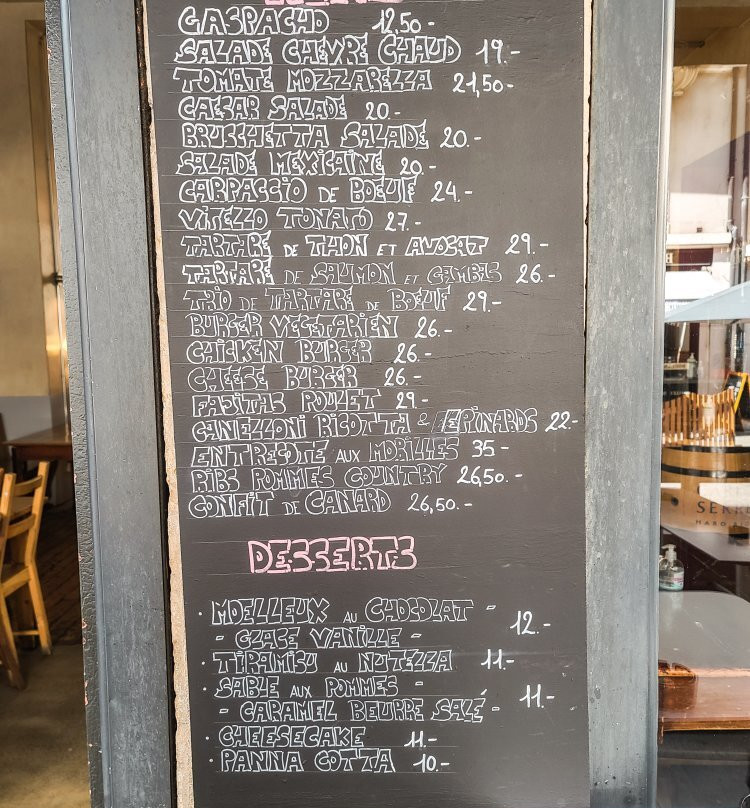 GASPACHO 12,50-
SALADE CHEVRE CHAUD 19.-
TOMATE MOZZARELLA 21,50-
CAESAR SALADE 20.-
BRUSCHETTA SALADE 20.-
SALADE MEXICAINE 20.-
CARPACCIO DE BOEUF 24.-
VITELLO TONATO 27.-
TARTARE DE THON ET AVOCAT 29.-
TARTARE DE SAUMON ET GAMBAS 26.-
TRIO DE TARTARE DE BOEUF 29.-
BURGER VEGETARIEN 26.-
CHICKEN BURGER 26.-
CHEESE BURGER 26.-
FAJITAS POULET 29.-
CANELLONI RICOTTA & EPINARDS 22-
ENTRECOTE AUX MORILLES 35-
RIBS POMMES COUNTRY 26,50-
CONFIT DE CANARD 26,50-
DESSERTS
· MOELLEUX AU CHOCOLAT - 12.-
- GLACE VANILLE -
· TIRAMISU AU NUTELLA 11.-
· SABLE AUX POMMES - 11.-
- CARAMEL BEURRE SALÉ -
· CHEESECAKE 11.-
· PANNA COTTA 10.-